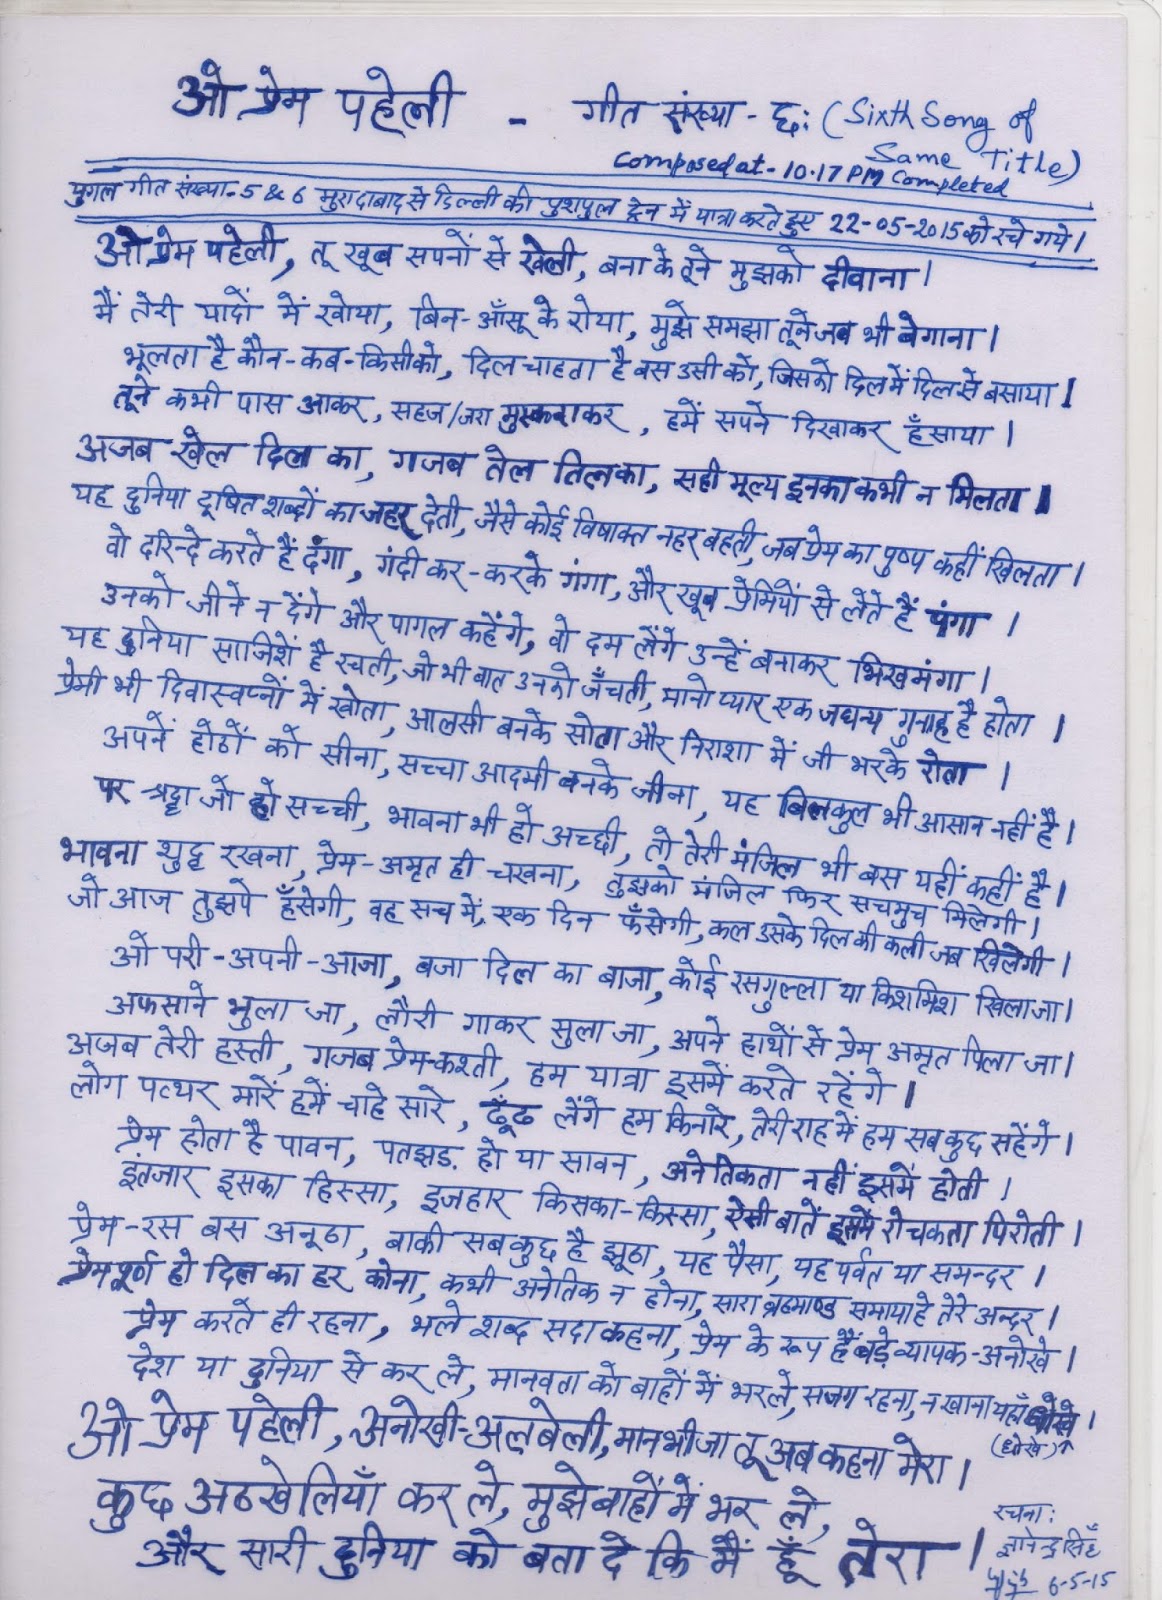 ओ प्रेम पहेली - गीत संख्या - छः (Sixth Song of
Same Title)
Composed at - 10.17 PM Completed
युगल गीत संख्या-5 & 6 मुरादाबाद से दिल्ली की पुशपुल ट्रेन में यात्रा करते हुए 22-05-2015 को रचे गये।
ओ प्रेम पहेली, तू खूब सपनों से खेली, बना के तूने मुझको दीवाना।
मैं तेरी यादों में खोया, बिन-आँसू के रोया, मुझे समझा तूने जब भी बेगाना।
भूलता है कौन-कब-किसीको, दिल चाहता है बस उसी को, जिसको दिल में दिल से बसाया।
तूने कभी पास आकर, सहज/जरा मुस्कराकर, हमें सपने दिखाकर हँसाया।
अजब खेल दिल का, गजब तेल तिल का, सही मूल्य इनका कभी न मिलता।
यह दुनिया दूषित शब्दों का जहर देती, जैसे कोई विषाक्त नहर बहती, जब प्रेम का पुष्प कहीं खिलता।
वो दरिन्दे करते हैं दंगा, गंदी कर-करके गंगा, और खूब प्रेमियों से लेते हैं पंगा।
उनको जीने न देंगे और पागल कहेंगे, वो दम लेंगे उन्हें बनाकर भिखमंगा।
यह दुनिया साजिशें है रचती, जो भी बात उनको जँचती, मानो प्यार एक जघन्य गुनाह है होता।
प्रेमी भी दिवास्वप्नों में खोता, आलसी बनके सोता और निराशा में जी भरके रोता।
अपने होठों को सीना, सच्चा आदमी बनके जीना, यह बिलकुल भी आसान नहीं है।
पर श्रद्धा जो हो सच्ची, भावना भी हो अच्छी, तो तेरी मंजिल भी बस यहीं कहीं है।
भावना शुद्ध रखना, प्रेम-अमृत ही चखना, तुझको मंजिल फिर सचमुच मिलेगी।
जो आज तुझपे हँसेगी, वह सच में, एक दिन फँसेगी, कल उसके दिल की कली जब खिलेगी।
ओ परी-अपनी-आजा, बजा दिल का बाजा, कोई रसगुल्ला या किशमिश खिलाजा।
अफसाने भुला जा, लौरी गाकर सुला जा, अपने हाथों से प्रेम अमृत पिला जा।
अजब तेरी हस्ती, गजब प्रेम-कश्ती, हम यात्रा इसमें करते रहेंगे।
लोग पत्थर मारें हमें चाहे सारे, ढूँढ लेंगे हम किनारे, तेरी राह में हम सब कुछ सहेंगे।
प्रेम होता है पावन, पतझड़ हो या सावन, अनैतिकता नहीं इसमें होती।
इंतजार इसका हिस्सा, इजहार किसका-किस्सा, ऐसी बातें इसमें रोचकता पिरोती।
प्रेम-रस बस अनूठा, बाकी सबकुछ है झूठा, यह पैसा, यह पर्वत या समन्दर।
प्रेमपूर्ण हो दिल का हर कोना, कभी अनैतिक न होना, सारा ब्रह्माण्ड समाया है तेरे अन्दर।
प्रेम करते ही रहना, भले शब्द सदा कहना, प्रेम के रूप हैं बड़े व्यापक-अनोखे।
देश या दुनिया से कर ले, मानवता को बाहों में भरले, सजग रहना, न खाना यहाँ धोखे।
(धोखे)
ओ प्रेम पहेली, अनोखी-अलबेली, मान भी जा तू अब कहना मेरा।
कुछ अठखेलियाँ कर ले, मुझे बाहों में भर ले,
और सारी दुनिया को बता दे कि मैं हूँ तेरा।
रचना:
ज्ञानेन्द्र सिंह
6-5-15